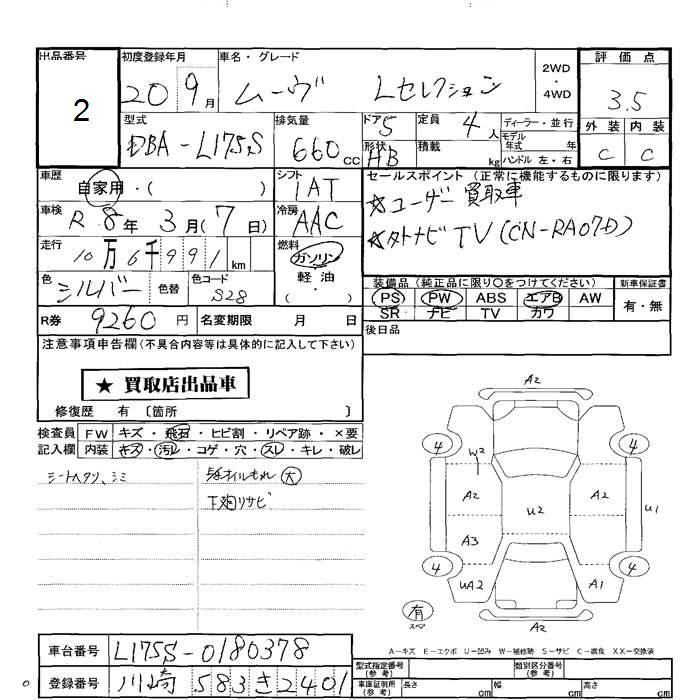 出品番号 初度登録年月 車名・グレード 2WD・4WD 評価点
2 20 9月 ムーヴ Lセレクション 3.5
型式 排気量 ドア 定員 ディーラー・並行 外装 内装
DBA-L175S 660cc 5 4人 モデル年式 年 C C
形状 HB 積載 kg ハンドル 左・右
車歴 自家用・( ) シフト IAT セールスポイント (正常に機能するものに限ります)
車検 R8年3月(7日) 冷房 AAC ☆ユーザー買取車
走行 10万6千991km 燃料 ガソリン 軽油 ・( ) ☆外ナビTV(CN-RA07D)
色 シルバー 色替 色コード S28
装備品 (純正品に限り○をつけてください) 新車保証書
PS PW ABS エアB AW 有・無
SR ナビ TV カワ
R券 9260円 名変期限 月 日 後日品
注意事項申告欄(不具合内容等は具体的に記入して下さい)
★ 買取店出品車
修復歴 有 〔箇所 〕
検査員 FW キズ・飛石・ヒビ割・リペア跡・×要
記入欄 内装 キズ・汚レ・コゲ・穴・スレ・キレ・破レ
シートヘタリ、シミ オイルもれ 大
下廻りサビ
A2
4 4
W2
A2 A2
U2 U1
A3
4 4
UA2 A1
有 スペア A2
A-キズ E-エクボ U-凹み W-補修跡 S-サビ C-腐食 XX-交換済
車台番号 L175S-0180378
型式指定番号(参考) 類別区分番号(参考)
登録番号 川崎 583 き 2401
車庫証明用(参考) 長さ cm 幅 cm 高さ cm